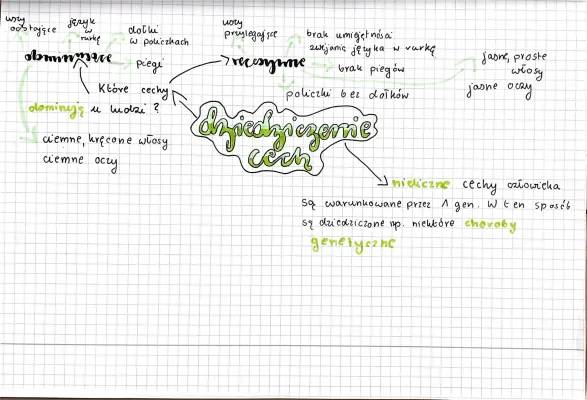 uszy odstające
język w rurkę
dołki w policzkach
piegi
dominujące
Które cechy
dominują u ludzi?
ciemne, kręcone włosy
ciemne oczy
uszy przylegające
brak umiejętności
zwijania języka w rurkę
brak piegów
jasne, proste włosy
jasne oczy
recesywne
policzki bez dołków
dziedziczenie
cech
nieliczne cechy człowieka
są warunkowane przez 1 gen. W ten sposób
są dziedziczone np. niektóre choroby
genetyczne